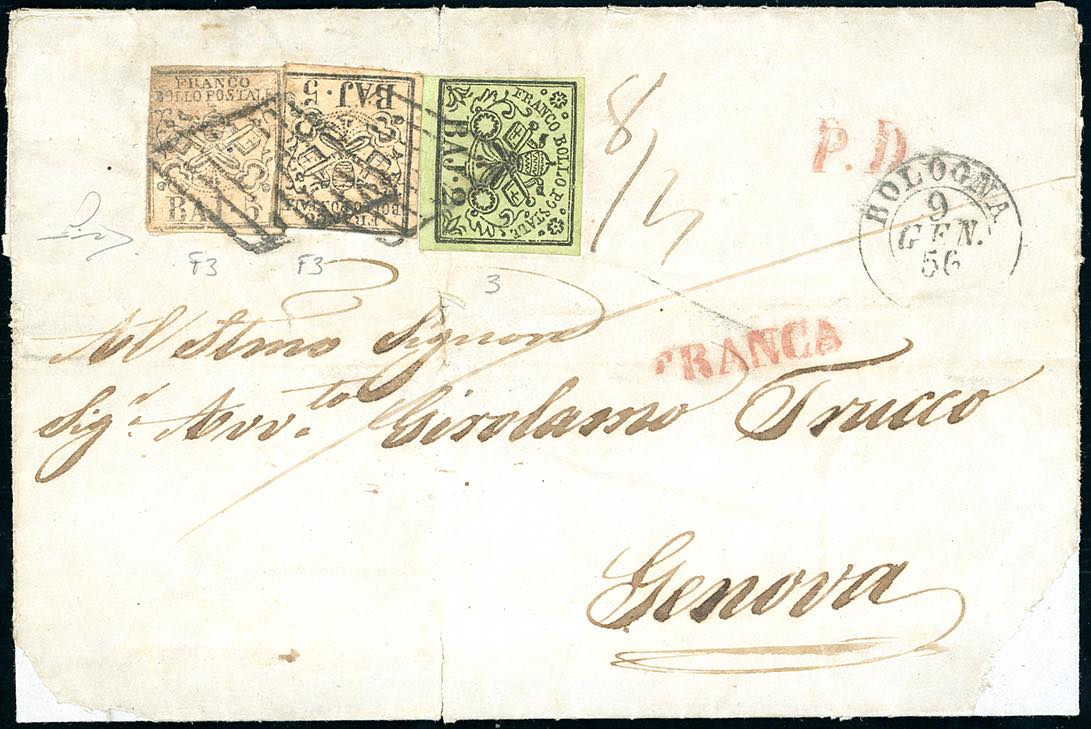 FRANCO
BOLLO POSTALE
BAJ 5
BAJ · 5
FRANCO BOLLO POSTALE
FRANCO BOLLO POSTALE
BAJ · 2
8/
P. D.
BOLOGNA
9
GEN.
56
F3
F3
3
All Illmo Signore
FRANCA
Sigr. Avv.to Girolamo Trucco
Genova